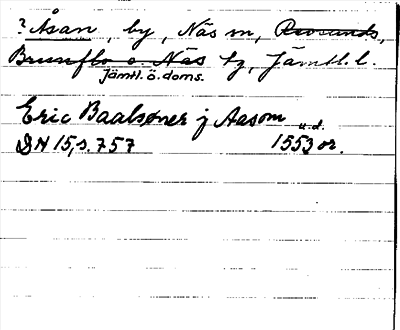 ? Åsan, by, Näs sn, Revsunds,
Brunflo o. Näs tg, Jämtl. l.
Jämtl. ö. doms.
Eric Baalsöner j Aasom
u.d.
DN 15, s. 757 1553 or.